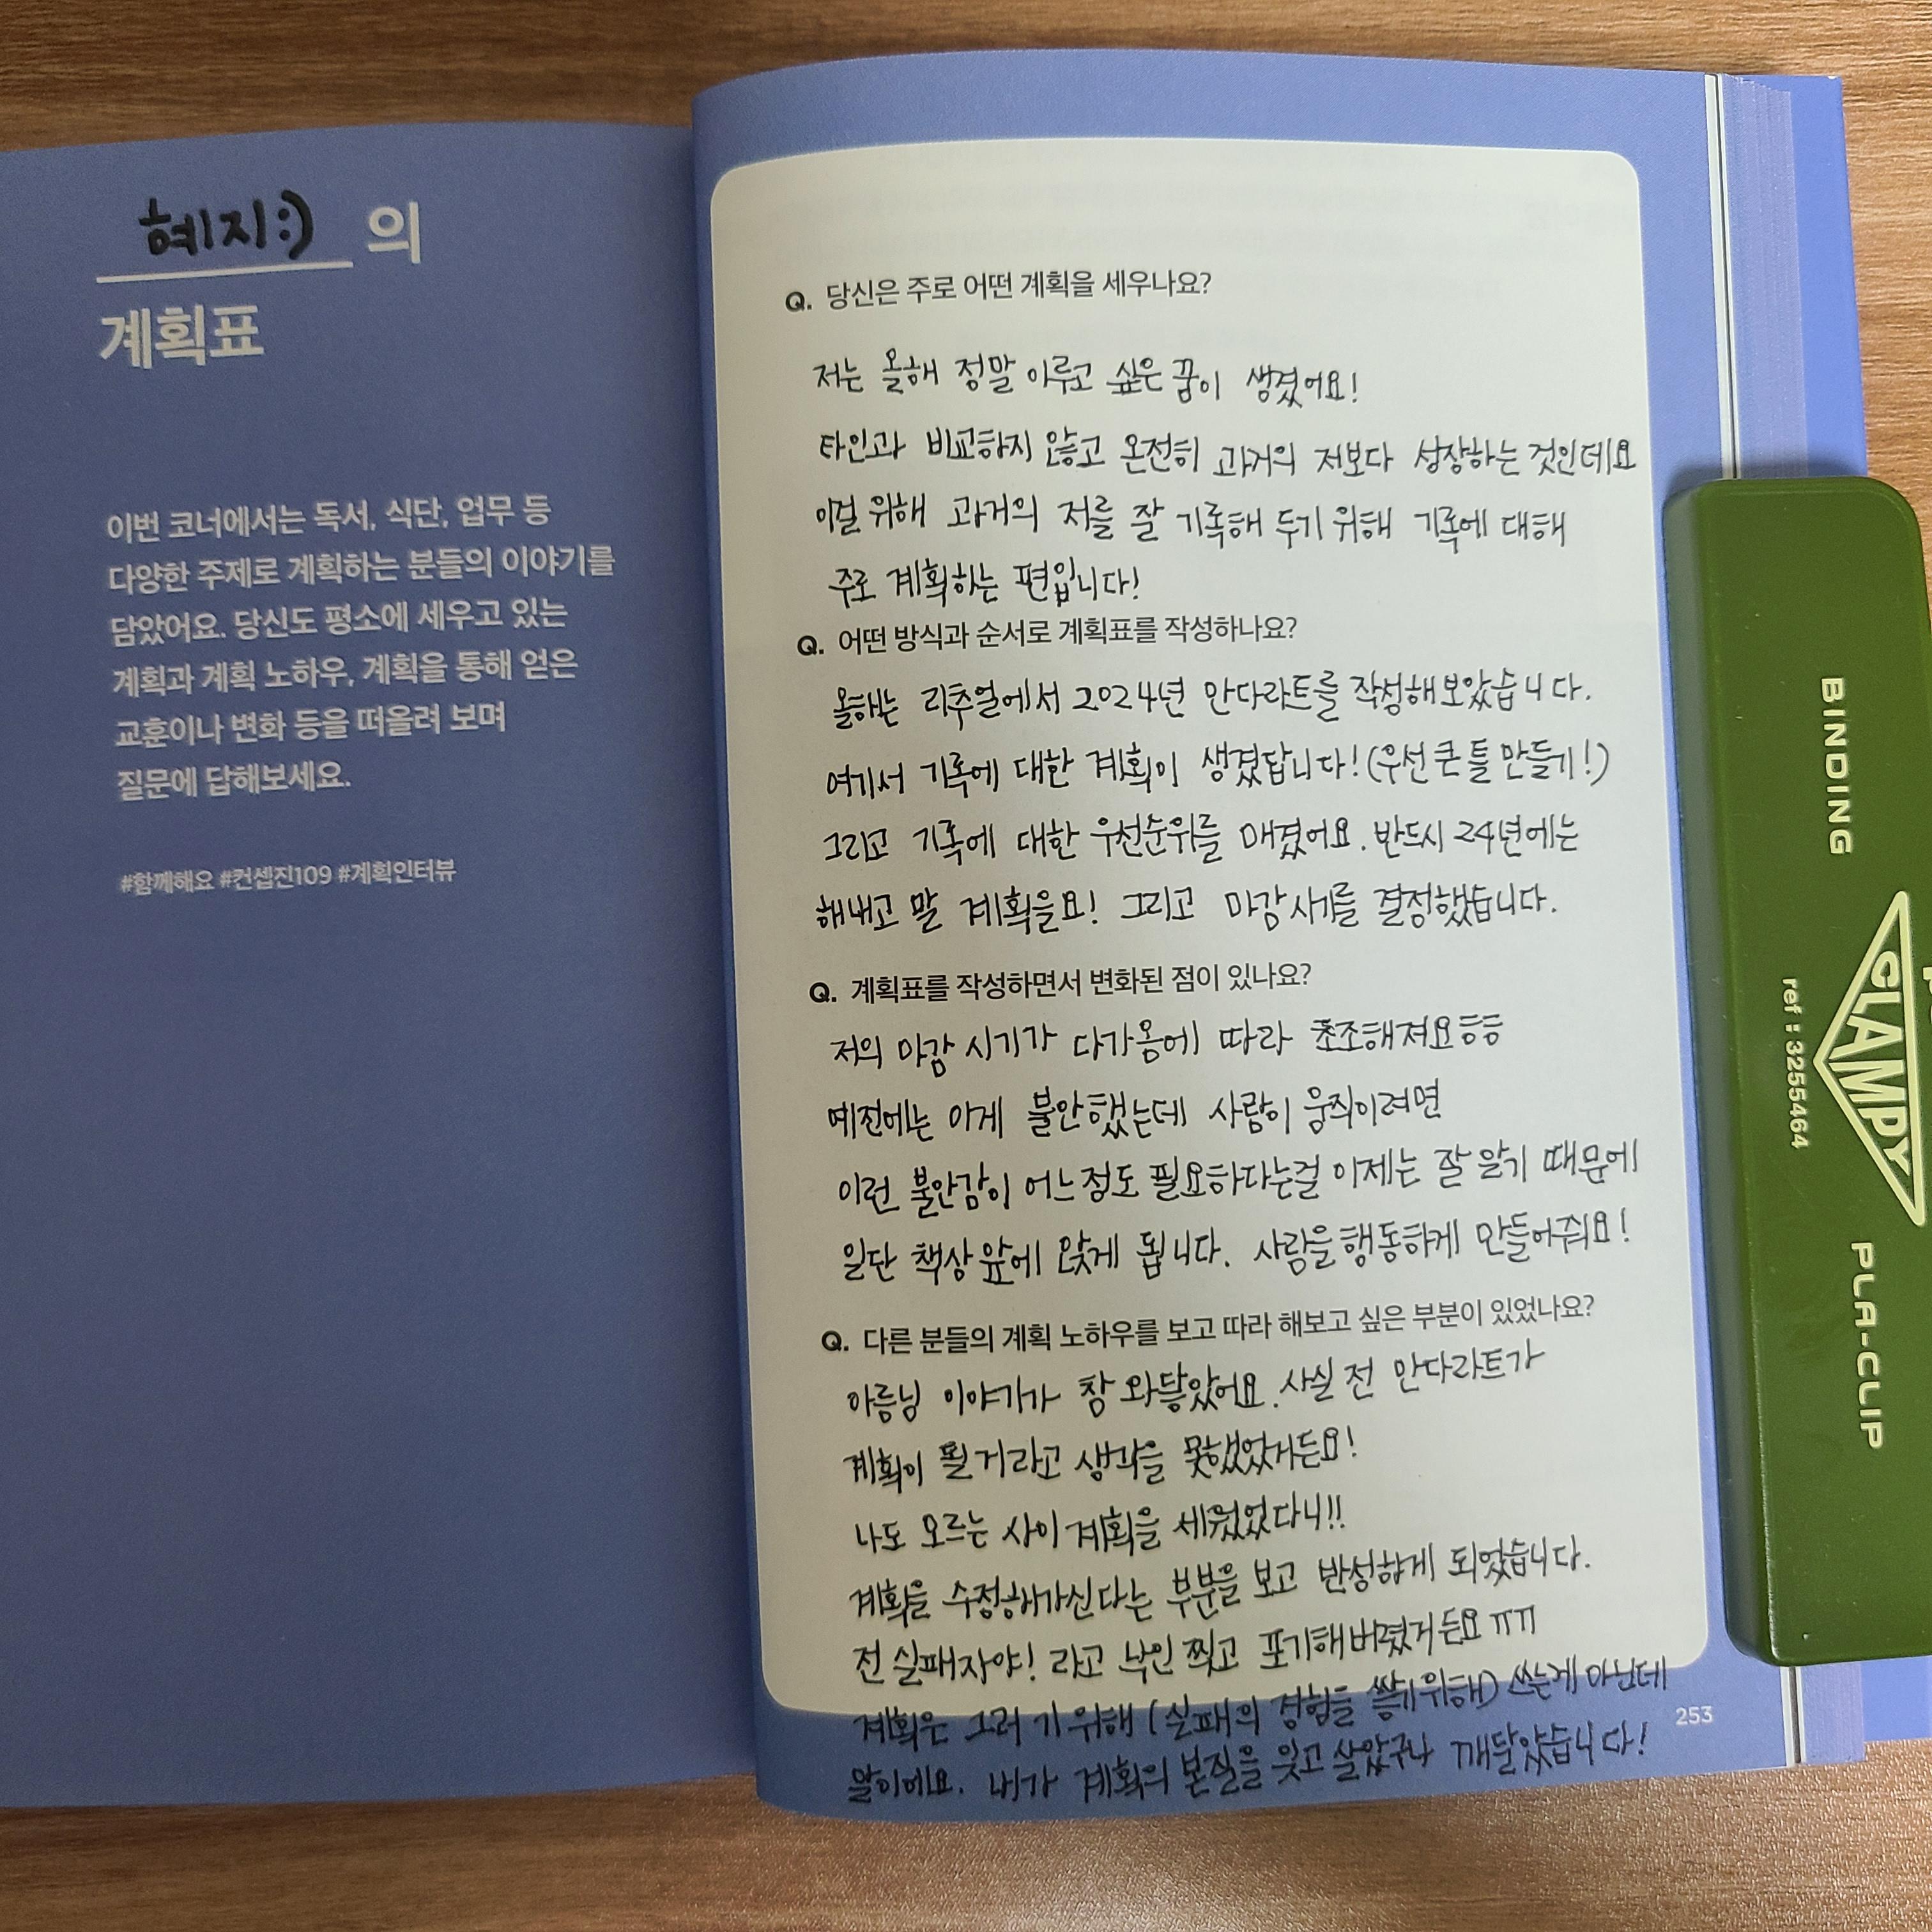 혜지:) 의
계획표
이번 코너에서는 독서, 식단, 업무 등
다양한 주제로 계획하는 분들의 이야기를
담았어요. 당신도 평소에 세우고 있는
계획과 계획 노하우, 계획을 통해 얻은
교훈이나 변화 등을 떠올려 보며
질문에 답해보세요.
#함께해요 #컨셉진109 #계획인터뷰
Q. 당신은 주로 어떤 계획을 세우나요?
저는 올해 정말 이루고 싶은 꿈이 생겼어요!
타인과 비교하지 않고 온전히 과거의 저보다 성장하는 것인데요
이걸 위해 과거의 저를 잘 기록해 두기 위해 기록에 대해
주로 계획하는 편입니다!
Q. 어떤 방식과 순서로 계획표를 작성하나요?
올해는 리추얼에서 2024년 만다라트를 작성해보았습니다.
여기서 기록에 대한 계획이 생겼답니다! (우선 큰 틀 만들기!)
그리고 기록에 대한 우선순위를 매겼어요. 반드시 24년에는
해내고 말 계획을요! 그리고 마감시기를 결정했습니다.
Q. 계획표를 작성하면서 변화된 점이 있나요?
저의 마감 시기가 다가옴에 따라 초조해져요ㅎㅎ
예전에는 이게 불안했는데 사람이 움직이려면
이런 불안감이 어느정도 필요하다는걸 이제는 잘 알기 때문에
일단 책상 앞에 앉게 됩니다. 사람을 행동하게 만들어줘요!
Q. 다른 분들의 계획 노하우를 보고 따라 해보고 싶은 부분이 있었나요?
아름님 이야기가 참 와닿았어요. 사실 전 만다라트가
계획이 될거라고 생각을 못했었거든요!
나도 모르는 사이 계획을 세웠었다니!!
계획을 수정해가신다는 부분을 보고 반성하게 되었습니다.
전 실패자야! 라고 낙인 찍고 포기해버렸거든요 ㅠㅠ
계획은 그러기 위해 (실패의 경험을 쌓기위해) 쓰는게 아닌데
말이에요. 내가 계획의 본질을 잊고 살았구나 깨달았습니다!
253
BINDING
CLAMPY
ref : 3255464
PLA-CLIP